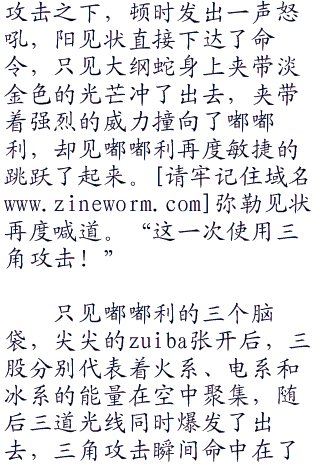 攻击之下，顿时发出一声怒
吼，阳见状直接下达了命
令，只见大纲蛇身上夹带淡
金色的光芒冲了出去，夹带
着强烈的威力撞向了嘟嘟
利，却见嘟嘟利再度敏捷的
跳跃了起来。[请牢记住域名
www.zineworm.com]弥勒见状
再度喊道。“这一次使用三
角攻击！”
只见嘟嘟利的三个脑
袋，尖尖的zuiba张开后，三
股分别代表着火系、电系和
冰系的能量在空中聚集，随
后三道光线同时爆发了出
去，三角攻击瞬间命中在了